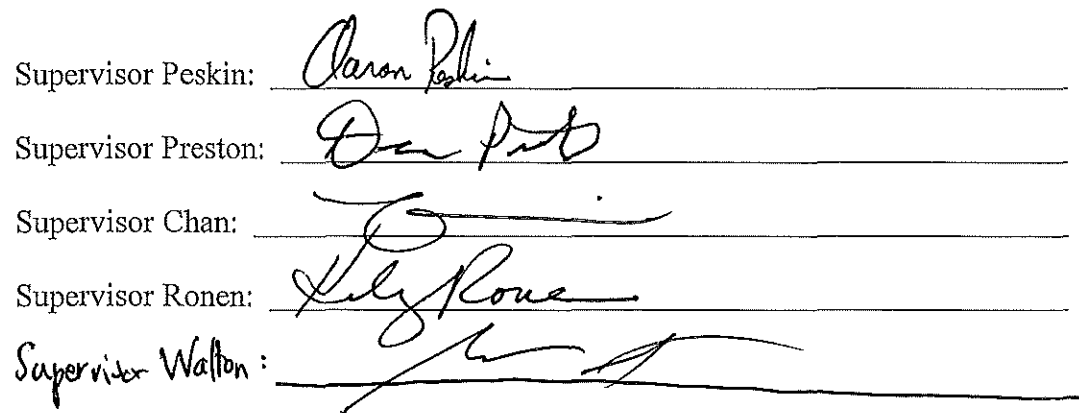 Supervisor Peskin: Aaron Peskin
Supervisor Preston: Dean Preston
Supervisor Chan:
Supervisor Ronen: Hillary Ronen
Supervisor Walton: